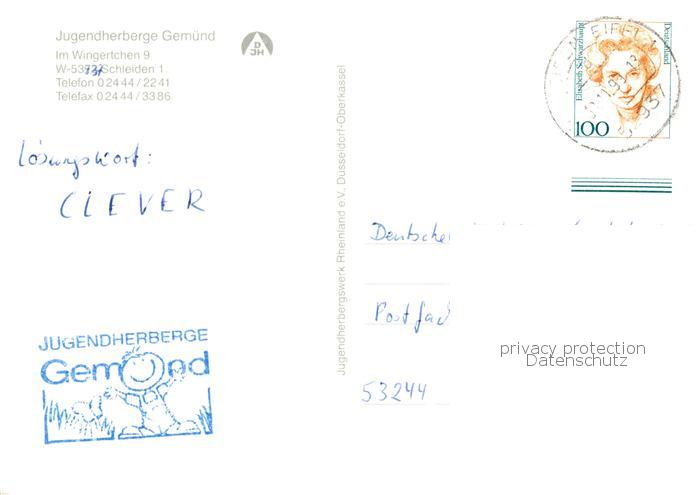 Jugendherberge Gemünd
Im Wingertchen 9
Schleiden 1
Telefon 0 24 44 / 22 41
Telefax 0 24 44 / 33 86
DJH
Elisabeth Schwarzhaupt
Deutschland
100
EIFEL
937
Lösungswort:
CLEVER
Jugendherbergswerk Rheinland e V. Düsseldorf-Oberkassel
Postfach
53244
JUGENDHERBERGE
Gemünd
privacy protection
Datenschutz